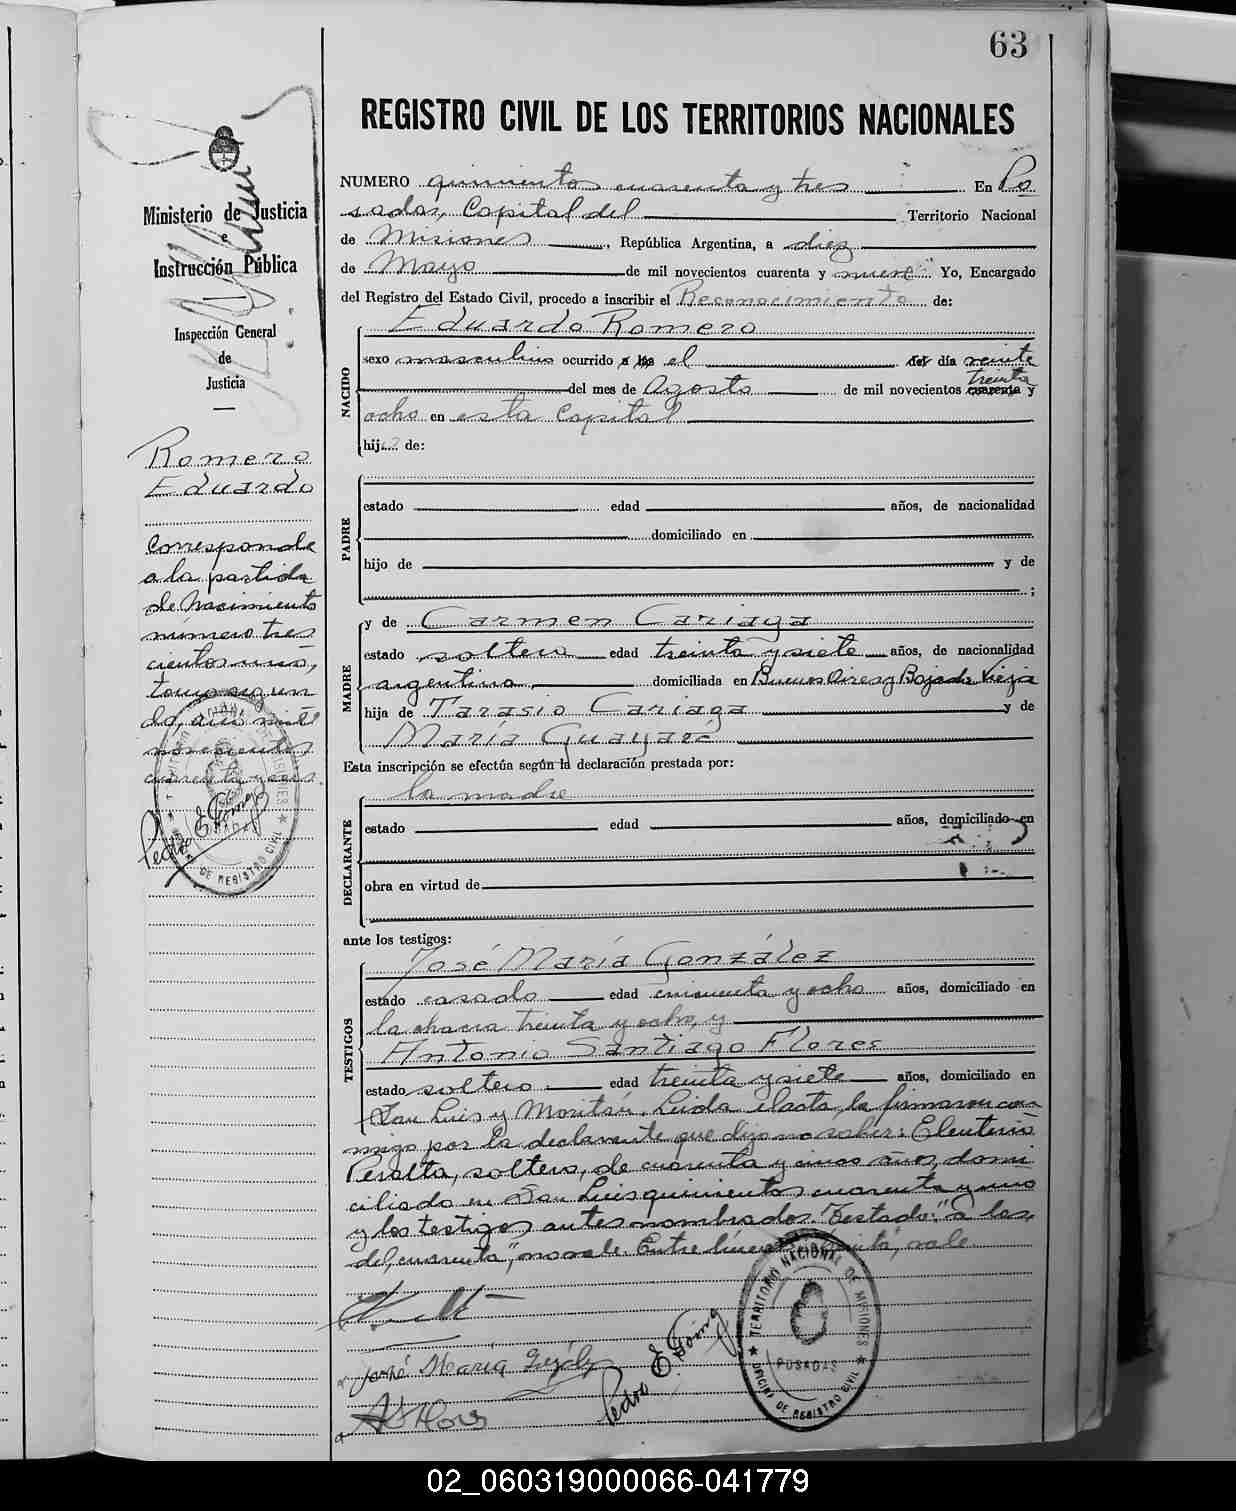 63
REGISTRO CIVIL DE LOS TERRITORIOS NACIONALES
Ministerio de Justicia
e
Instrucción Pública
Inspección General
de
Justicia
Romero
Eduardo
Corresponde
a la partida
de Nacimiento
número tres
cientos uno,
tomo segun
do, año mil
novecientos
cuarenta y
Pedro E Gomez
TERRITORIO NACIONAL DE MISIONES
OFICINA DE REGISTRO CIVIL
NUMERO quinientos cuarenta y tres En Po
sadas, Capital del Territorio Nacional
de Misiones, República Argentina, a diez
de Mayo de mil novecientos cuarenta y nueve Yo, Encargado
del Registro del Estado Civil, procedo a inscribir el Reconocimiento de:
NACIDO
Eduardo Romero
sexo masculino ocurrido a las el del día veinte
treinta
del mes de Agosto de mil novecientos cuarenta y
ocho en esta Capital
hijo de:
PADRE
estado edad años, de nacionalidad
domiciliado en
hijo de y de
;
MADRE
y de Carmen Cariaga
estado soltera edad treinta y siete años, de nacionalidad
argentina, domiciliada en Buenos Aires y Bajada Vieja
hija de Tarasio Cariaga y de
María Guayaré
Esta inscripción se efectúa según la declaración prestada por:
DECLARANTE
la madre
estado edad años, domiciliado en
obra en virtud de
ante los testigos:
TESTIGOS
José María González
estado casado edad cincuenta y ocho años, domiciliado en
la chacra treinta y ocho, y
Antonio Santiago Flores
estado soltero edad treinta y siete años, domiciliado en
San Luis y Moritán. Leída el acta, la firmaron con
migo por la declarante que dijo no saber: Eleuterio
Peralta, soltero, de cuarenta y cinco años, domi
ciliado en San Luis quinientos cuarenta y uno
y los testigos antes nombrados. Testado: "a las,
del, cuarenta", no vale. Entre líneas: "treinta", vale
José María
Pedro E Gomez
TERRITORIO NACIONAL DE MISIONES
POSADAS
OFICINA DE REGISTRO CIVIL
02_060319000066-041779